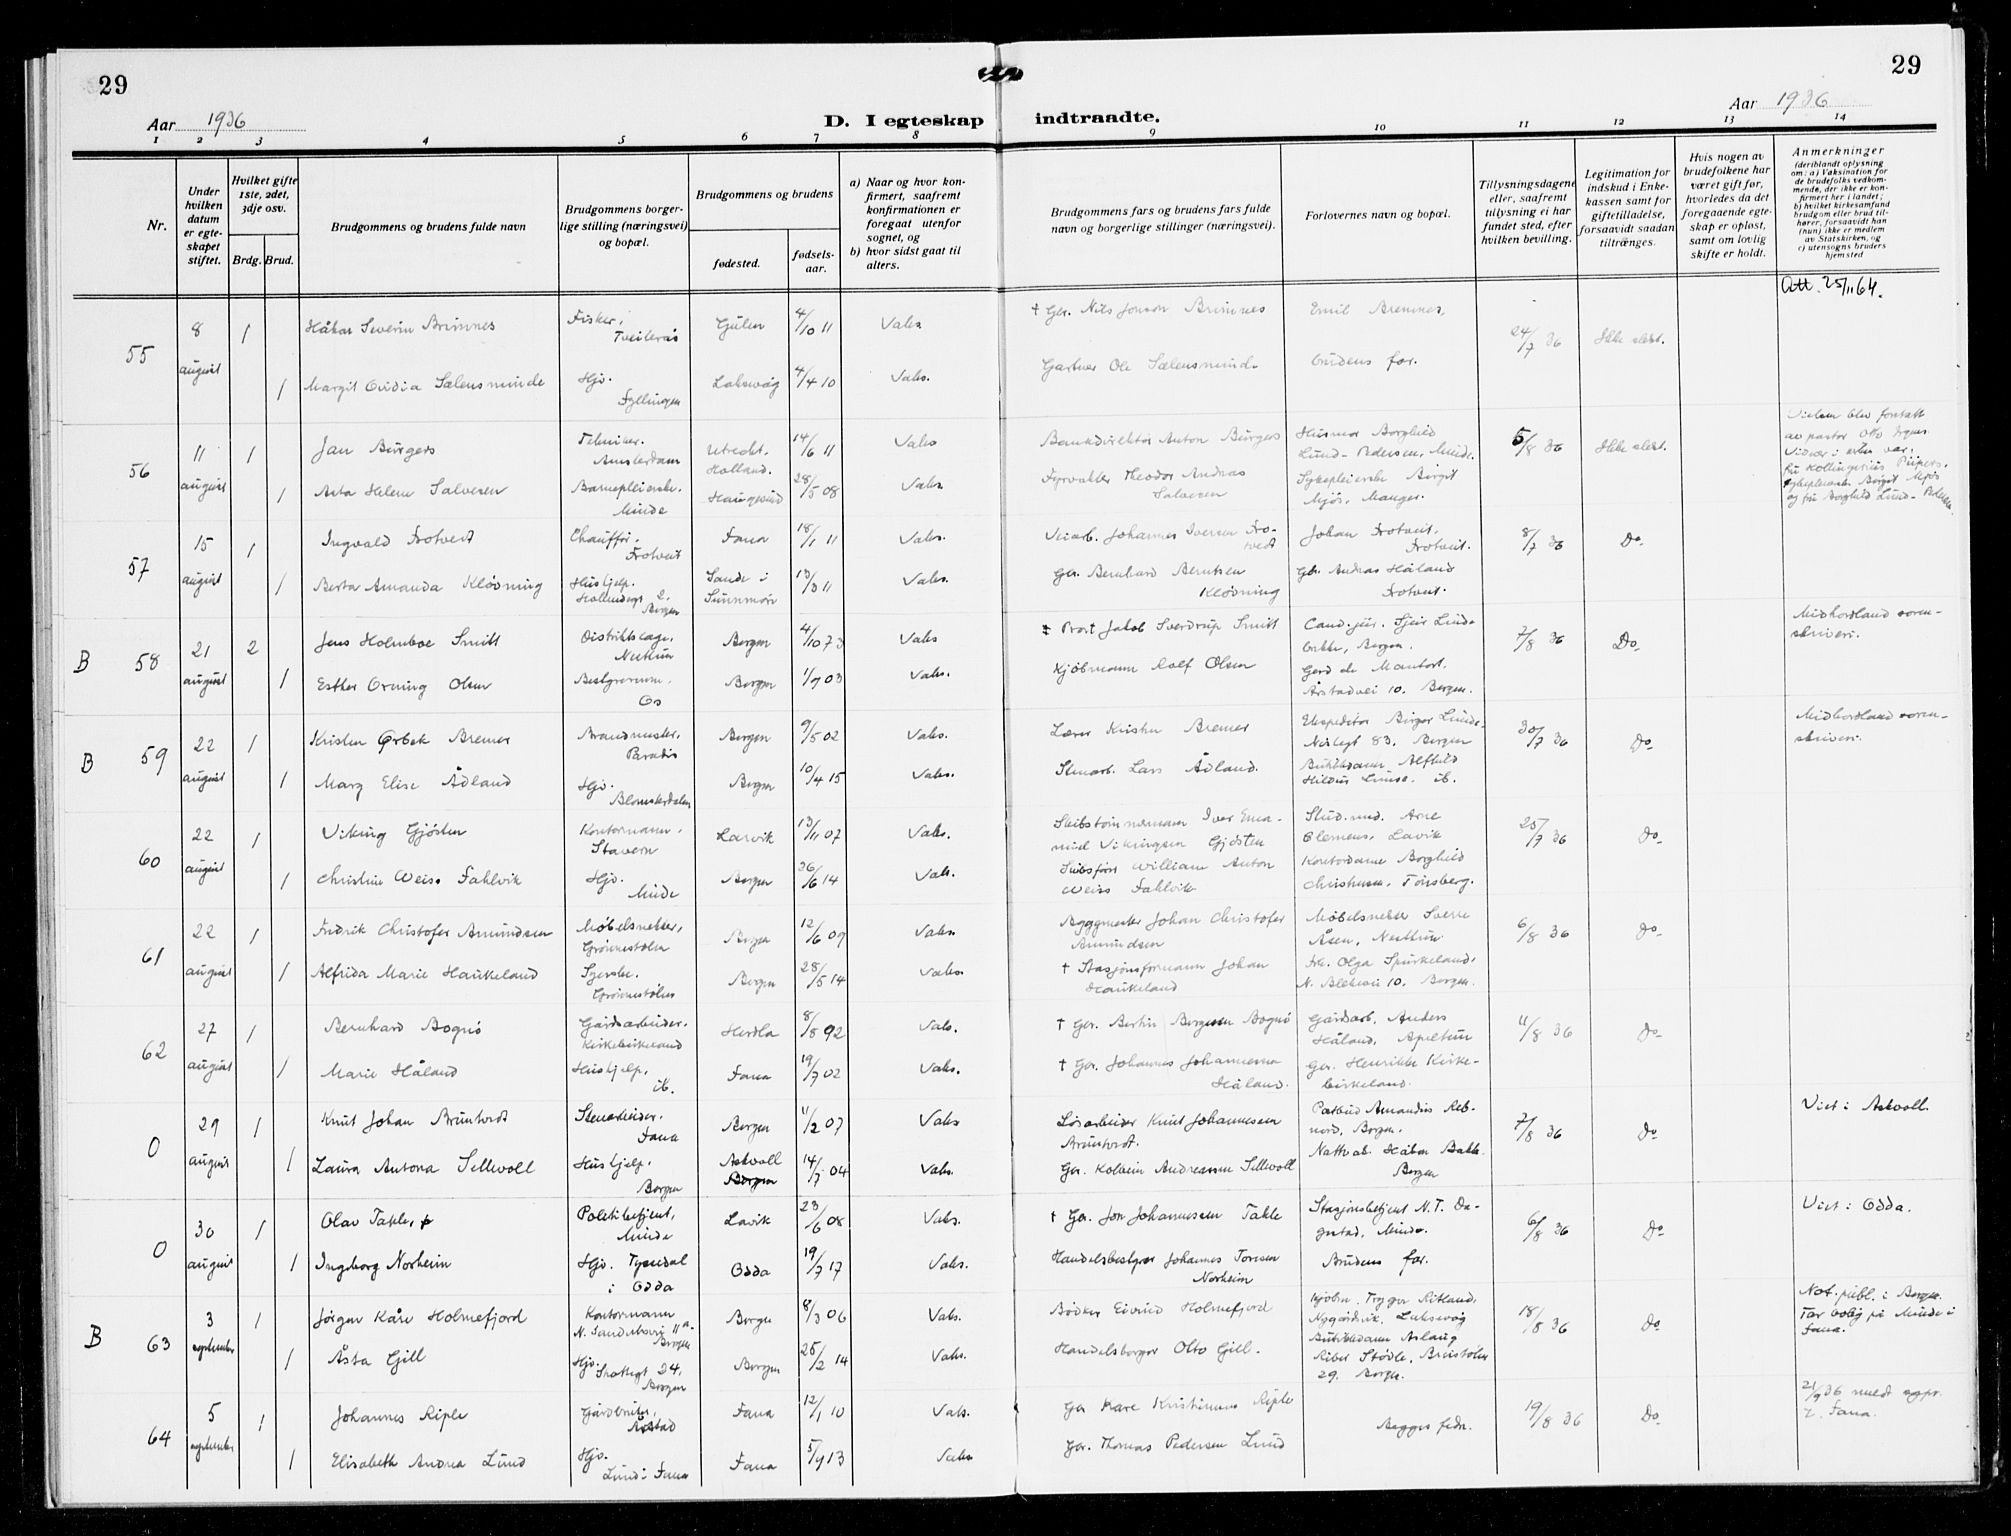 29
29
Aar 1936
D. I egteskap indtraadte.
Aar 1936
1 2 3 4 5 6 7 8 9 10 11 12 13 14
Nr.
Under hvilken datum er egteskapet stiftet.
Hvilket gifte 1ste, 2det, 3dje osv.
Brdg. Brud.
Brudgommens og brudens fulde navn
Brudgommens borgerlige stilling (næringsvei) og bopæl.
Brudgommens og brudens
fødested.
fødselsaar.
a) Naar og hvor konfirmert, saafremt konfirmationen er foregaat utenfor sognet, og
b) hvor sidst gaat til alters.
Brudgommens fars og brudens fars fulde navn og borgerlige stillinger (næringsvei).
Forlovernes navn og bopæl.
Tillysningsdagene eller, saafremt tillysning ei har fundet sted, efter hvilken bevilling.
Legitimation for indskud i Enkekassen samt for giftetilladelse, forsaavidt saadan tiltrænges.
Hvis nogen av brudefolkene har været gift før, hvorledes da det foregaaende egteskap er opløst, samt om lovlig skifte er holdt.
Anmerkninger
(deriblandt oplysning om: a) Vaksination for de brudefolks vedkommende, der ikke er konfirmert her i landet; b) hvilket kirkesamfund brudgom eller brud tilhører, forsaavidt han (hun) ikke er medlem av Statskirken, og c) utensogns bruders hjemsted
Att. 25/11 64.
55 8 august 1 Håkon Severin Brimnes Fisker, Tveiterås Gulen 4/10 11 Vaks. † Gbr. Nils Jonson Brimnes Emil Bremnes, 24/7 36 Ikke elekt.
1 Margit Ovidia Sælensminde Hjv. Fyllingen Laksevåg 4/4 10 Vaks. Gartner Ole Sælensminde brudens far.
56 11 august 1 Jan Burgers Tekniker. Amsterdam Utrecht, Holland. 14/6 11 Vaks Bankdirektør Anton Burgers Husmor Borghild Lund-Pedersen, Minde. 5/8 36 Ikke elekt.
Vielsen blev foretatt av pastor Otto
1 Asta Helene Salvesen Barnepleierske. Minde Haugesund 28/5 08 Vaks. Fyrvokter Theodor Andreas Salvesen Sykepleierske Birgit Mjös, Manger.
og fru Borghild Lund-Pedersen
57 15 august 1 Ingvald Frotveit Chauffør, Frotveit Fana 18/1 11 Vaks. Veiarb. Johannes Iversen Frotvedt Johan Frotveit, Frotveit. 8/7 36 Do
1 Berta Amanda Kløvning Hushjelp. Bergen Sande i Sunnmøre 13/3 11 Vaks. Gbr. Bernhard Berntsen Kløvning Gbr. Andreas Håland Frotveit.
B 58 21 august 2 Jens Holmboe Smitt Distriktslæge, Nesttun Bergen 4/10 73 Vaks † Prost Jakob Sverdrup Smitt Cand. jur. Bergen. 7/8 36 Do. Midhordland sorenskriveri.
1 Esther Orning Olsen Bestyrerinne. Os Bergen 1/9 03 Vaks. Kjøbmann Rolf Olsen Årstadvei 10. Bergen.
B 59 22 august 1 Kristen Ørbek Bremer Brandmester, Paradis Bergen 9/5 02 Vaks. Lærer Kristen Bremer Ekspeditør Birger Lunde Bergen 30/7 36 Do Midhordland sorenskriveri.
1 Mary Elise Ådland Hjv. Blomsterdalen Bergen 10/4 15 Vaks. Stenarb. Lars Ådland. Butikkdame Alfhild ib.
60 22 august 1 Viking Gjøsten Kontormann. Stavern Larvik 13/11 07 Vaks. Skibstømmermann Iver Emanuel Vikingsen Gjøsten Stud.med. Arne Clemens, Larvik 25/7 36 Do.
1 Christine Weiss Fahlvik Hjv. Minde Bergen 26/6 14 Vaks. Skibsfører William Anton Weiss Fahlvik Kontordame Borghild Christensen, Tønsberg.
61 22 august 1 Fredrik Christofer Amundsen Møbelsnekker, Grønnestølen Bergen 12/6 09 Vaks. Byggmester Johan Christofer Amundsen Møbelsnekker Sverre Åsen, Nesttun 6/8 36 Do.
1 Alfrida Marie Haukeland Syerske. Grønnestølen Bergen 28/5 14 Vaks. † Stasjonsformann Johan Haukeland Frk. Olga Spurkeland, N. Blekevei 10. Bergen.
62 27 august 1 Bernhard Bognø Gårdsarbeider. Kirkebirkeland Herdla 8/8 92 Vaks. † Gbr. Bertin Børgesen Bognø Gårdsarb. Anders Håland, Apeltun 11/8 36 Do
1 Marie Håland Hushjelp, ib. Fana 19/7 02 Vaks. † Gbr. Johannes Johannessen Håland. Gbr. Henrikke Kirkebirkeland.
0 29 august 1 Knut Johan Brüntveit Stenarbeider. Fana Bergen 11/2 07 Vaks Løsarbeider Knut Johannesen Postbud Amandus Rebnord, Bergen. 7/8 36 Do Viet i Askvoll.
1 Laura Antona Sellevoll Hushjelp. Bergen Askvoll Bergen 14/7 04 Vaks. Gbr. Kolbein Andreassen Sellevoll Nattvakt Håkon Bakke. Bergen
0 30 august 1 Olav Takle, Politibetjent, Minde Lavik 23/6 08 Vaks. † Gbr. Jon Johannessen Takle Stasjonsbetjent N. T. Dagestad, Minde. 6/8 36 Do Viet i Odda.
1 Ingeborg Norheim Hjv. Tyssedal i Odda Odda 19/7 17 Vaks. Handelsbestyrer Johannes Toresen Norheim Brudens far.
B 63 3 september 1 Jørgen Kåre Holmefjord Kontormann N. Sandviksvei 11a. Bergen Bergen 8/3 06 Vaks. Bødker Eivind Holmefjord Kjøbm. Trygve Nygårdsvik, Laksevåg 18/8 36 Do Not. publ. i Bergen. Tar bolig på Minde i Fana.
1 Åsta Gjill Hjv. 24, Bergen Bergen 25/2 14 Vaks. Handelsborger Otto Gjill. Butikkdame Aslaug Riber Støvle, 29. Bergen.
64 5 september 1 Johannes Riple Gårdbruker, Fana 12/1 10 Vaks. Gbr Kristiansen Riple Begges fedre. 19/8 36 Do 21/9 36 meldt
1 Elisabeth Andrea Lund Hjv. Lund i Fana Fana 5/9 13 Vaks Gbr. Thomas Pedersen Lund